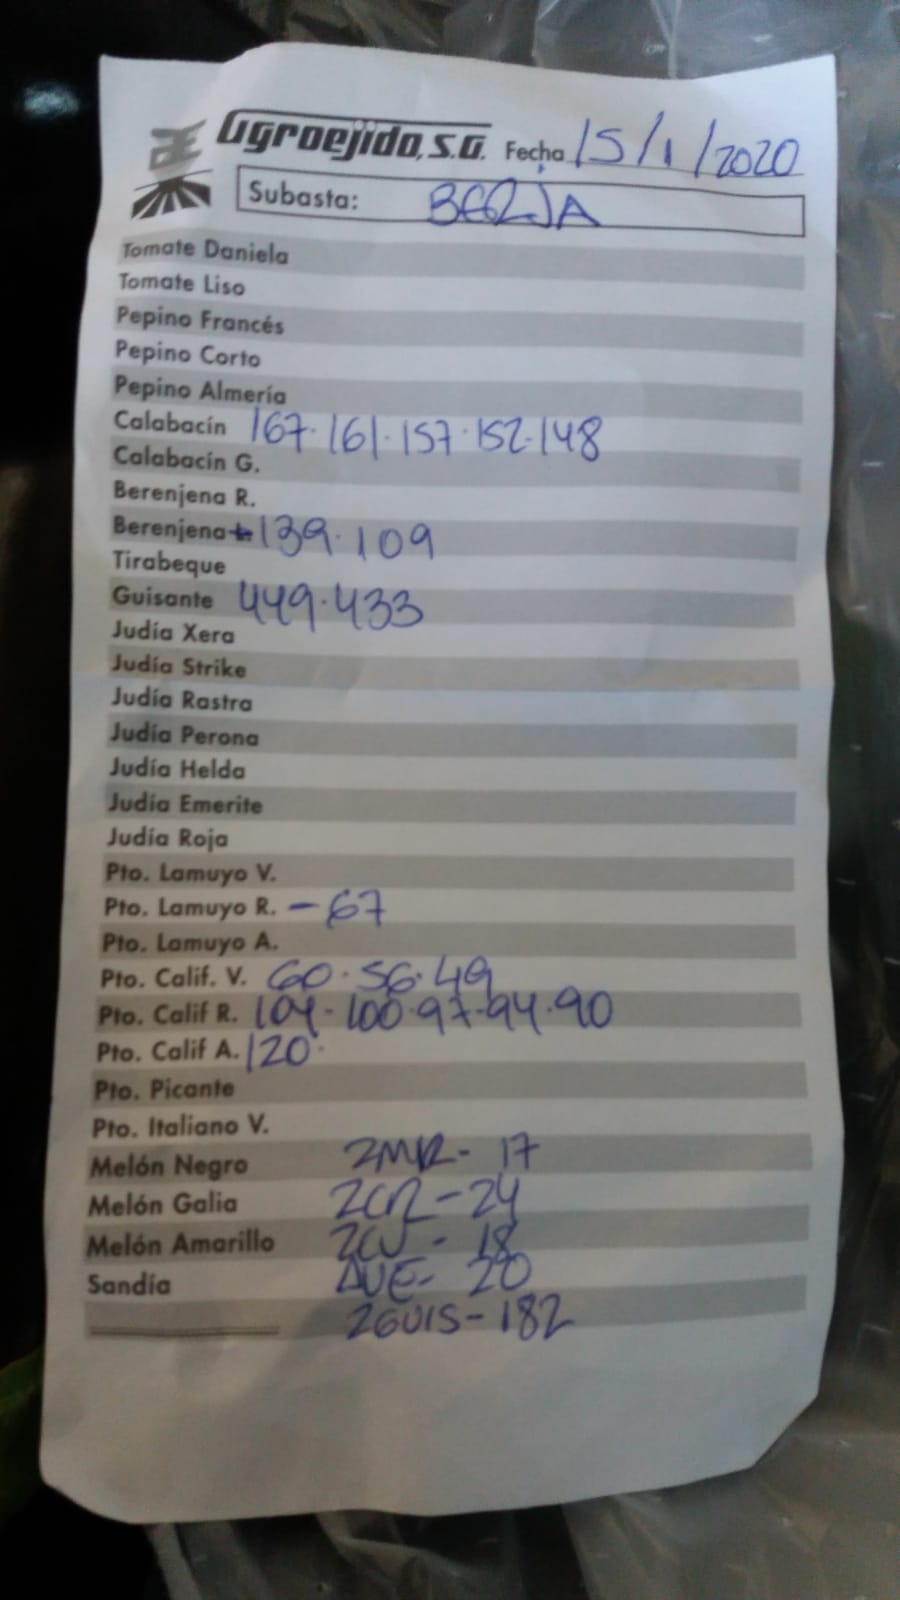 Agroejido, S.A. Fecha 15/1/2020
Subasta: BERJA
Tomate Daniela
Tomate Liso
Pepino Francés
Pepino Corto
Pepino Almería
Calabacín 167·161·157·152·148
Calabacín G.
Berenjena R.
Berenjena L. 139·109
Tirabeque
Guisante 449·433
Judía Xera
Judía Strike
Judía Rastra
Judía Perona
Judía Helda
Judía Emerite
Judía Roja
Pto. Lamuyo V.
Pto. Lamuyo R. - 67
Pto. Lamuyo A.
Pto. Calif. V. 60·56·49
Pto. Calif R. 104-100·97-94·90
Pto. Calif A. 120·
Pto. Picante
Pto. Italiano V.
Melón Negro 2MR- 17
Melón Galia 2CR-24
Melón Amarillo 2CV - 18
Sandía AVE- 20
2GUIS-182